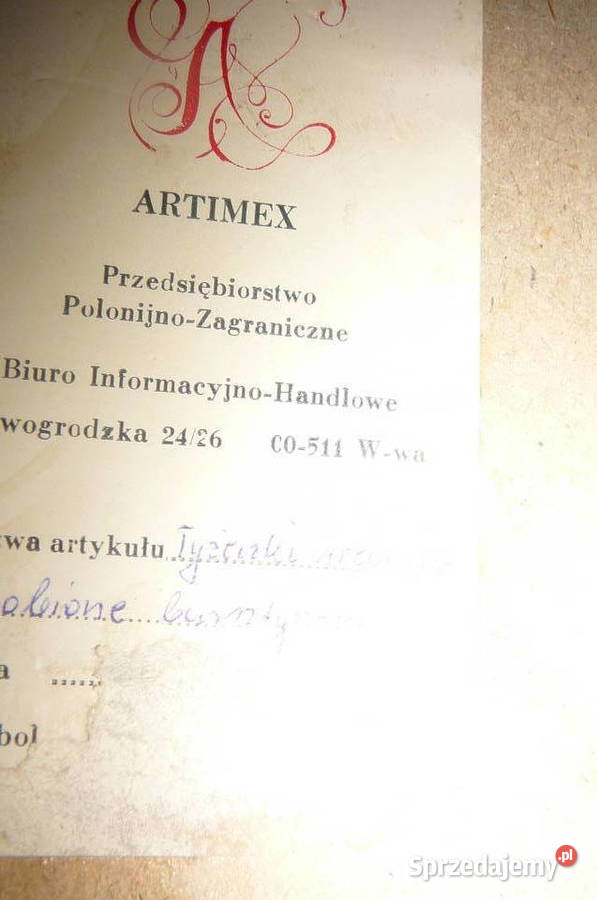 A
ARTIMEX
Przedsiębiorstwo
Polonijno-Zagraniczne
Biuro Informacyjno-Handlowe
wogrodzka 24/26 CO-511 W-wa
zwa artykułu Łyżeczki
obione
a .....
bol
Sprzedajemy.pl